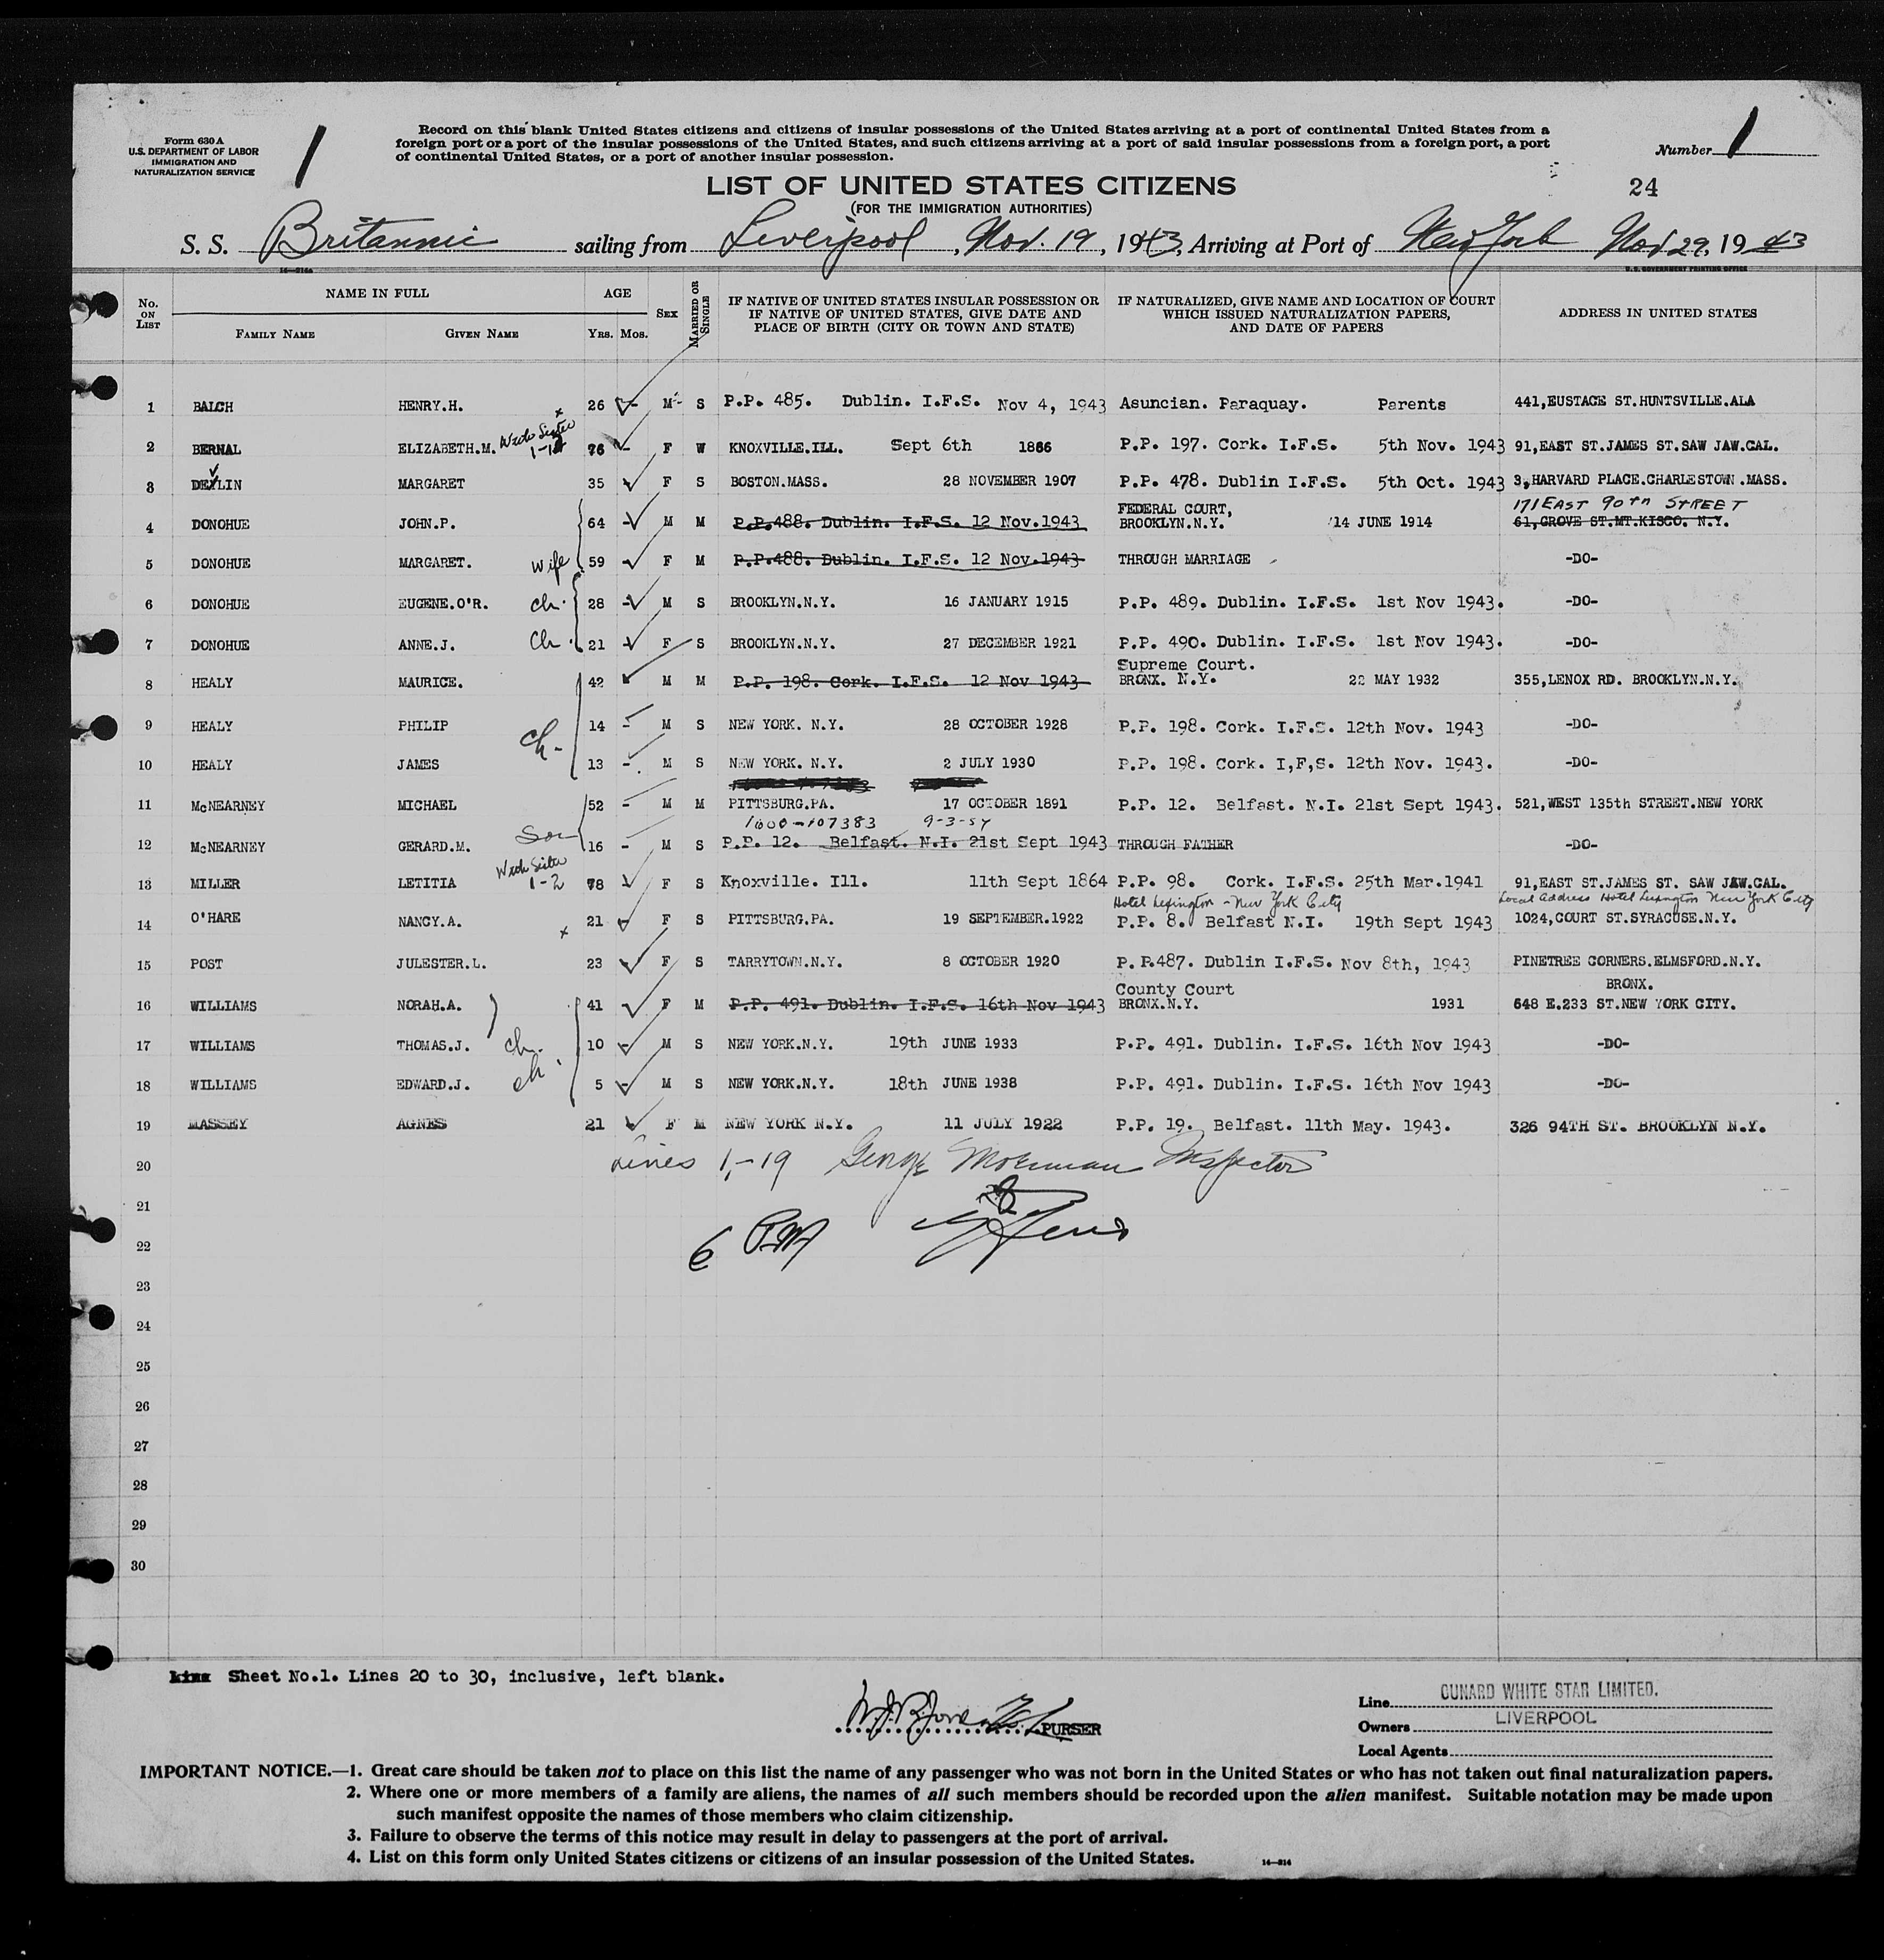 Form 630 A
U.S. DEPARTMENT OF LABOR
IMMIGRATION AND
NATURALIZATION SERVICE
1
Record on this blank United States citizens and citizens of insular possessions of the United States arriving at a port of continental United States from a
foreign port or a port of the insular possessions of the United States, and such citizens arriving at a port of said insular possessions from a foreign port, a port
of continental United States, or a port of another insular possession.
Number 1
24
LIST OF UNITED STATES CITIZENS
(FOR THE IMMIGRATION AUTHORITIES)
S. S. Britannic sailing from Liverpool, Nov. 19, 1943, Arriving at Port of New York Nov 29, 1943
14—214a U.S. GOVERNMENT PRINTING OFFICE
No. ON LIST NAME IN FULL FAMILY NAME GIVEN NAME AGE YRS. MOS. SEX MARRIED OR SINGLE IF NATIVE OF UNITED STATES INSULAR POSSESSION OR IF NATIVE OF UNITED STATES, GIVE DATE AND PLACE OF BIRTH (CITY OR TOWN AND STATE) IF NATURALIZED, GIVE NAME AND LOCATION OF COURT WHICH ISSUED NATURALIZATION PAPERS, AND DATE OF PAPERS ADDRESS IN UNITED STATES
1 BALCH HENRY.H. 26 M S P.P. 485. Dublin. I.F.S. Nov 4, 1943 Asuncian. Paraquay. Parents 441,EUSTACE ST.HUNTSVILLE.ALA
x With Sister
2 BERNAL ELIZABETH.M. 76 F W KNOXVILLE.ILL. Sept 6th 1866 P.P. 197. Cork. I.F.S. 5th Nov. 1943 91,EAST ST.JAMES ST.SAW JAW.CAL.
3 DEVLIN MARGARET 35 F S BOSTON.MASS. 28 NOVEMBER 1907 P.P. 478. Dublin I.F.S. 5th Oct. 1943 3,HARVARD PLACE.CHARLESTOWN.MASS.
FEDERAL COURT, 171 EAST 90TH STREET
4 DONOHUE JOHN.P. 64 M M P.P.488. Dublin. I.F.S. 12 Nov.1943 BROOKLYN.N.Y. 14 JUNE 1914 61,GROVE ST.MT.KISCO. N.Y.
5 DONOHUE MARGARET. wife 59 F M P.P.488. Dublin. I.F.S. 12 Nov.1943 THROUGH MARRIAGE -DO-
6 DONOHUE EUGENE.O'R. ch. 28 M S BROOKLYN.N.Y. 16 JANUARY 1915 P.P. 489. Dublin. I.F.S. 1st Nov 1943. -DO-
7 DONOHUE ANNE.J. ch. 21 F S BROOKLYN.N.Y. 27 DECEMBER 1921 P.P. 490. Dublin. I.F.S. 1st Nov 1943. -DO-
Supreme Court.
8 HEALY MAURICE. 42 M M P.P. 198. Cork. I.F.S. 12 Nov 1943 BRONX. N.Y. 22 MAY 1932 355,LENOX RD. BROOKLYN.N.Y.
9 HEALY PHILIP ch. 14 M S NEW YORK. N.Y. 28 OCTOBER 1928 P.P. 198. Cork. I.F.S. 12th Nov. 1943 -DO-
10 HEALY JAMES 13 M S NEW YORK. N.Y. 2 JULY 1930 P.P. 198. Cork. I,F,S. 12th Nov. 1943. -DO-
11 McNEARNEY MICHAEL 52 M M PITTSBURG.PA. 17 OCTOBER 1891 P.P. 12. Belfast. N.I. 21st Sept 1943. 521,WEST 135th STREET.NEW YORK
1600-107383 9-3-54
12 McNEARNEY GERARD.M. Son 16 M S P.P. 12. Belfast. N.I. 21st Sept 1943 THROUGH FATHER -DO-
With Sister
13 MILLER LETITIA 1-2 78 F S Knoxville. Ill. 11th Sept 1864 P.P. 98. Cork. I.F.S. 25th Mar.1941 91,EAST ST.JAMES ST. SAW JAW.CAL.
Hotel Lexington - New York City Local Address Hotel Lexington New York City
14 O'HARE NANCY.A. x 21 F S PITTSBURG.PA. 19 SEPTEMBER.1922 P.P. 8. Belfast N.I. 19th Sept 1943 1024,COURT ST.SYRACUSE.N.Y.
15 POST JULESTER.L. 23 F S TARRYTOWN.N.Y. 8 OCTOBER 1920 P.P.487. Dublin I.F.S. Nov 8th, 1943 PINETREE CORNERS.ELMSFORD.N.Y.
County Court BRONX.
16 WILLIAMS NORAH.A. 41 F M P.P. 491. Dublin. I.F.S. 16th Nov 1943 BRONX.N.Y. 1931 648 E.233 ST.NEW YORK CITY.
17 WILLIAMS THOMAS.J. ch. 10 M S NEW YORK.N.Y. 19th JUNE 1933 P.P. 491. Dublin. I.F.S. 16th Nov 1943 -DO-
18 WILLIAMS EDWARD.J. ch. 5 M S NEW YORK.N.Y. 18th JUNE 1938 P.P. 491. Dublin. I.F.S. 16th Nov 1943 -DO-
19 MASSEY AGNES 21 F M NEW YORK N.Y. 11 JULY 1922 P.P. 19. Belfast. 11th May. 1943. 326 94TH ST. BROOKLYN N.Y.
20 Lines 1-19 George Inspector
21
22 6 PM
23
24
25
26
27
28
29
30
Sheet No.1. Lines 20 to 30, inclusive, left blank.
PURSER
Line CUNARD WHITE STAR LIMITED.
Owners LIVERPOOL
Local Agents
IMPORTANT NOTICE.—1. Great care should be taken not to place on this list the name of any passenger who was not born in the United States or who has not taken out final naturalization papers.
2. Where one or more members of a family are aliens, the names of all such members should be recorded upon the alien manifest. Suitable notation may be made upon
such manifest opposite the names of those members who claim citizenship.
3. Failure to observe the terms of this notice may result in delay to passengers at the port of arrival.
4. List on this form only United States citizens or citizens of an insular possession of the United States.
14—214